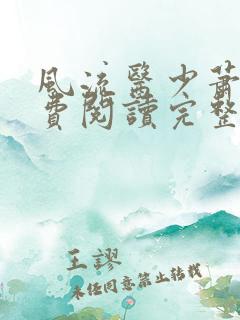 風流醫少蕭
費閱讀完整
王謬
未經同意禁止轉載